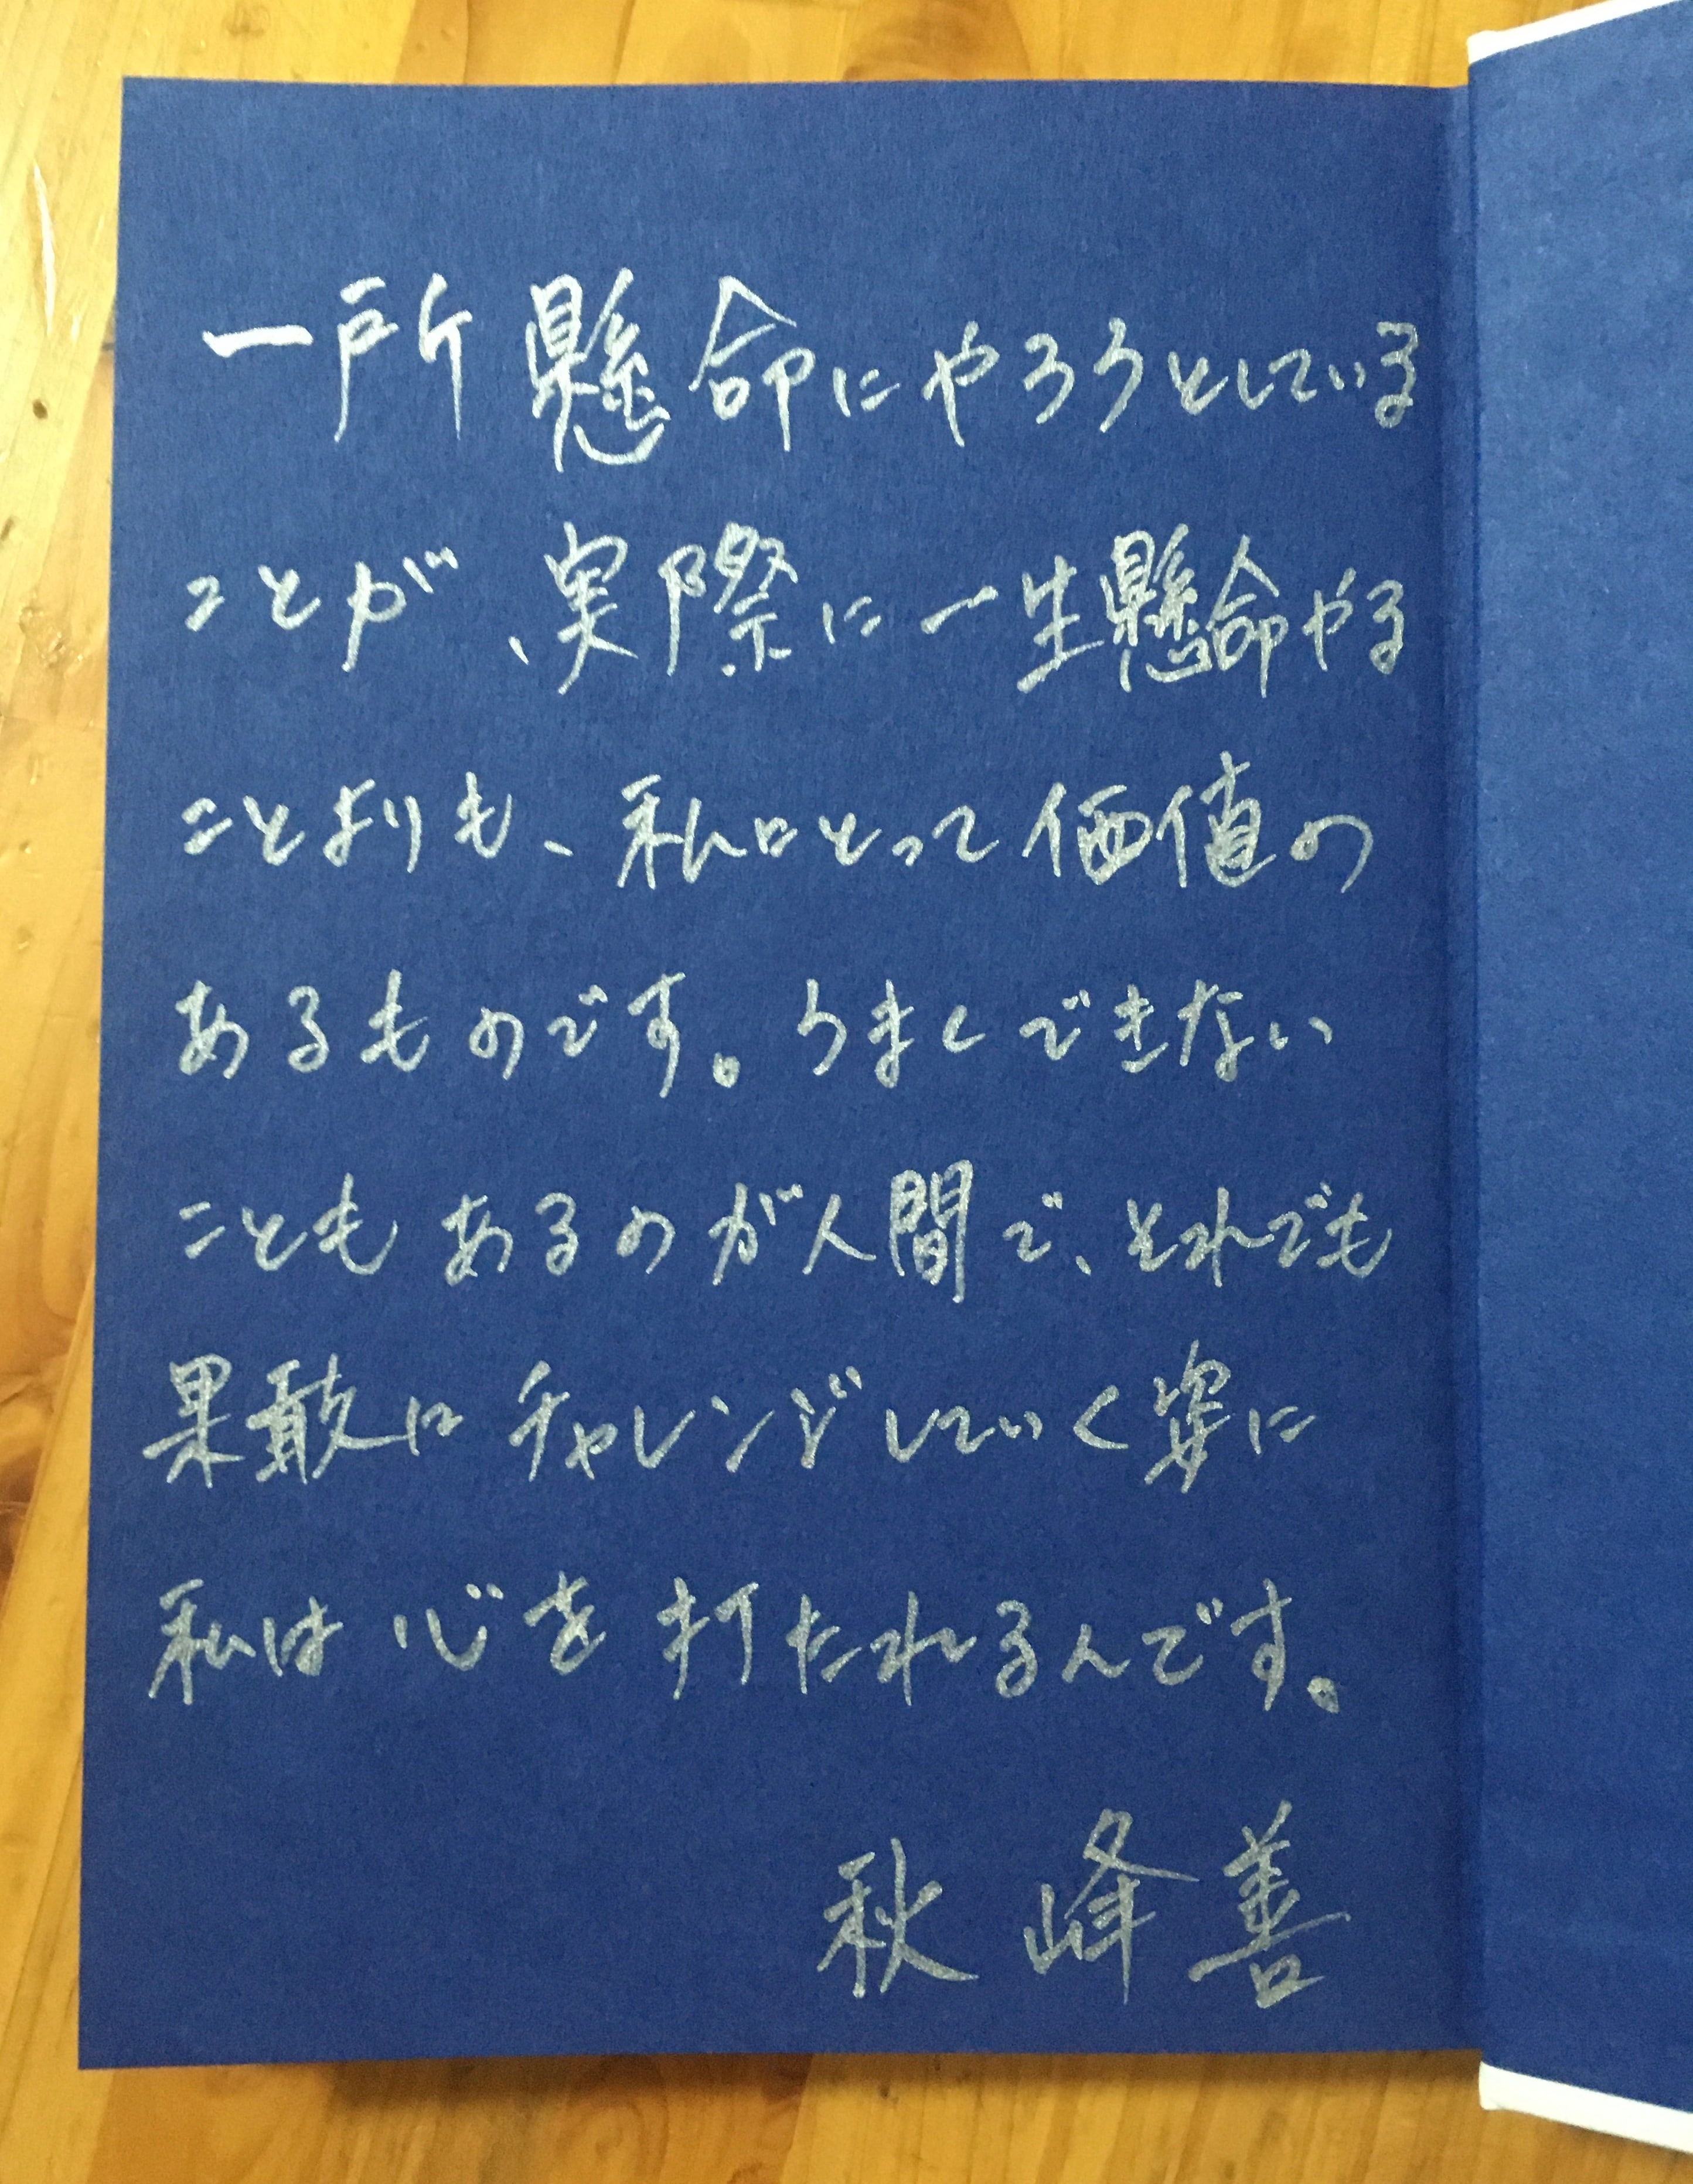 一所懸命にやろうとしている
ことが、実際に一生懸命やる
ことよりも、私にとって価値の
あるものです。うまくできない
こともあるのが人間で、それでも
果敢にチャレンジしていく姿に
私は心を打たれるんです。
秋峰善